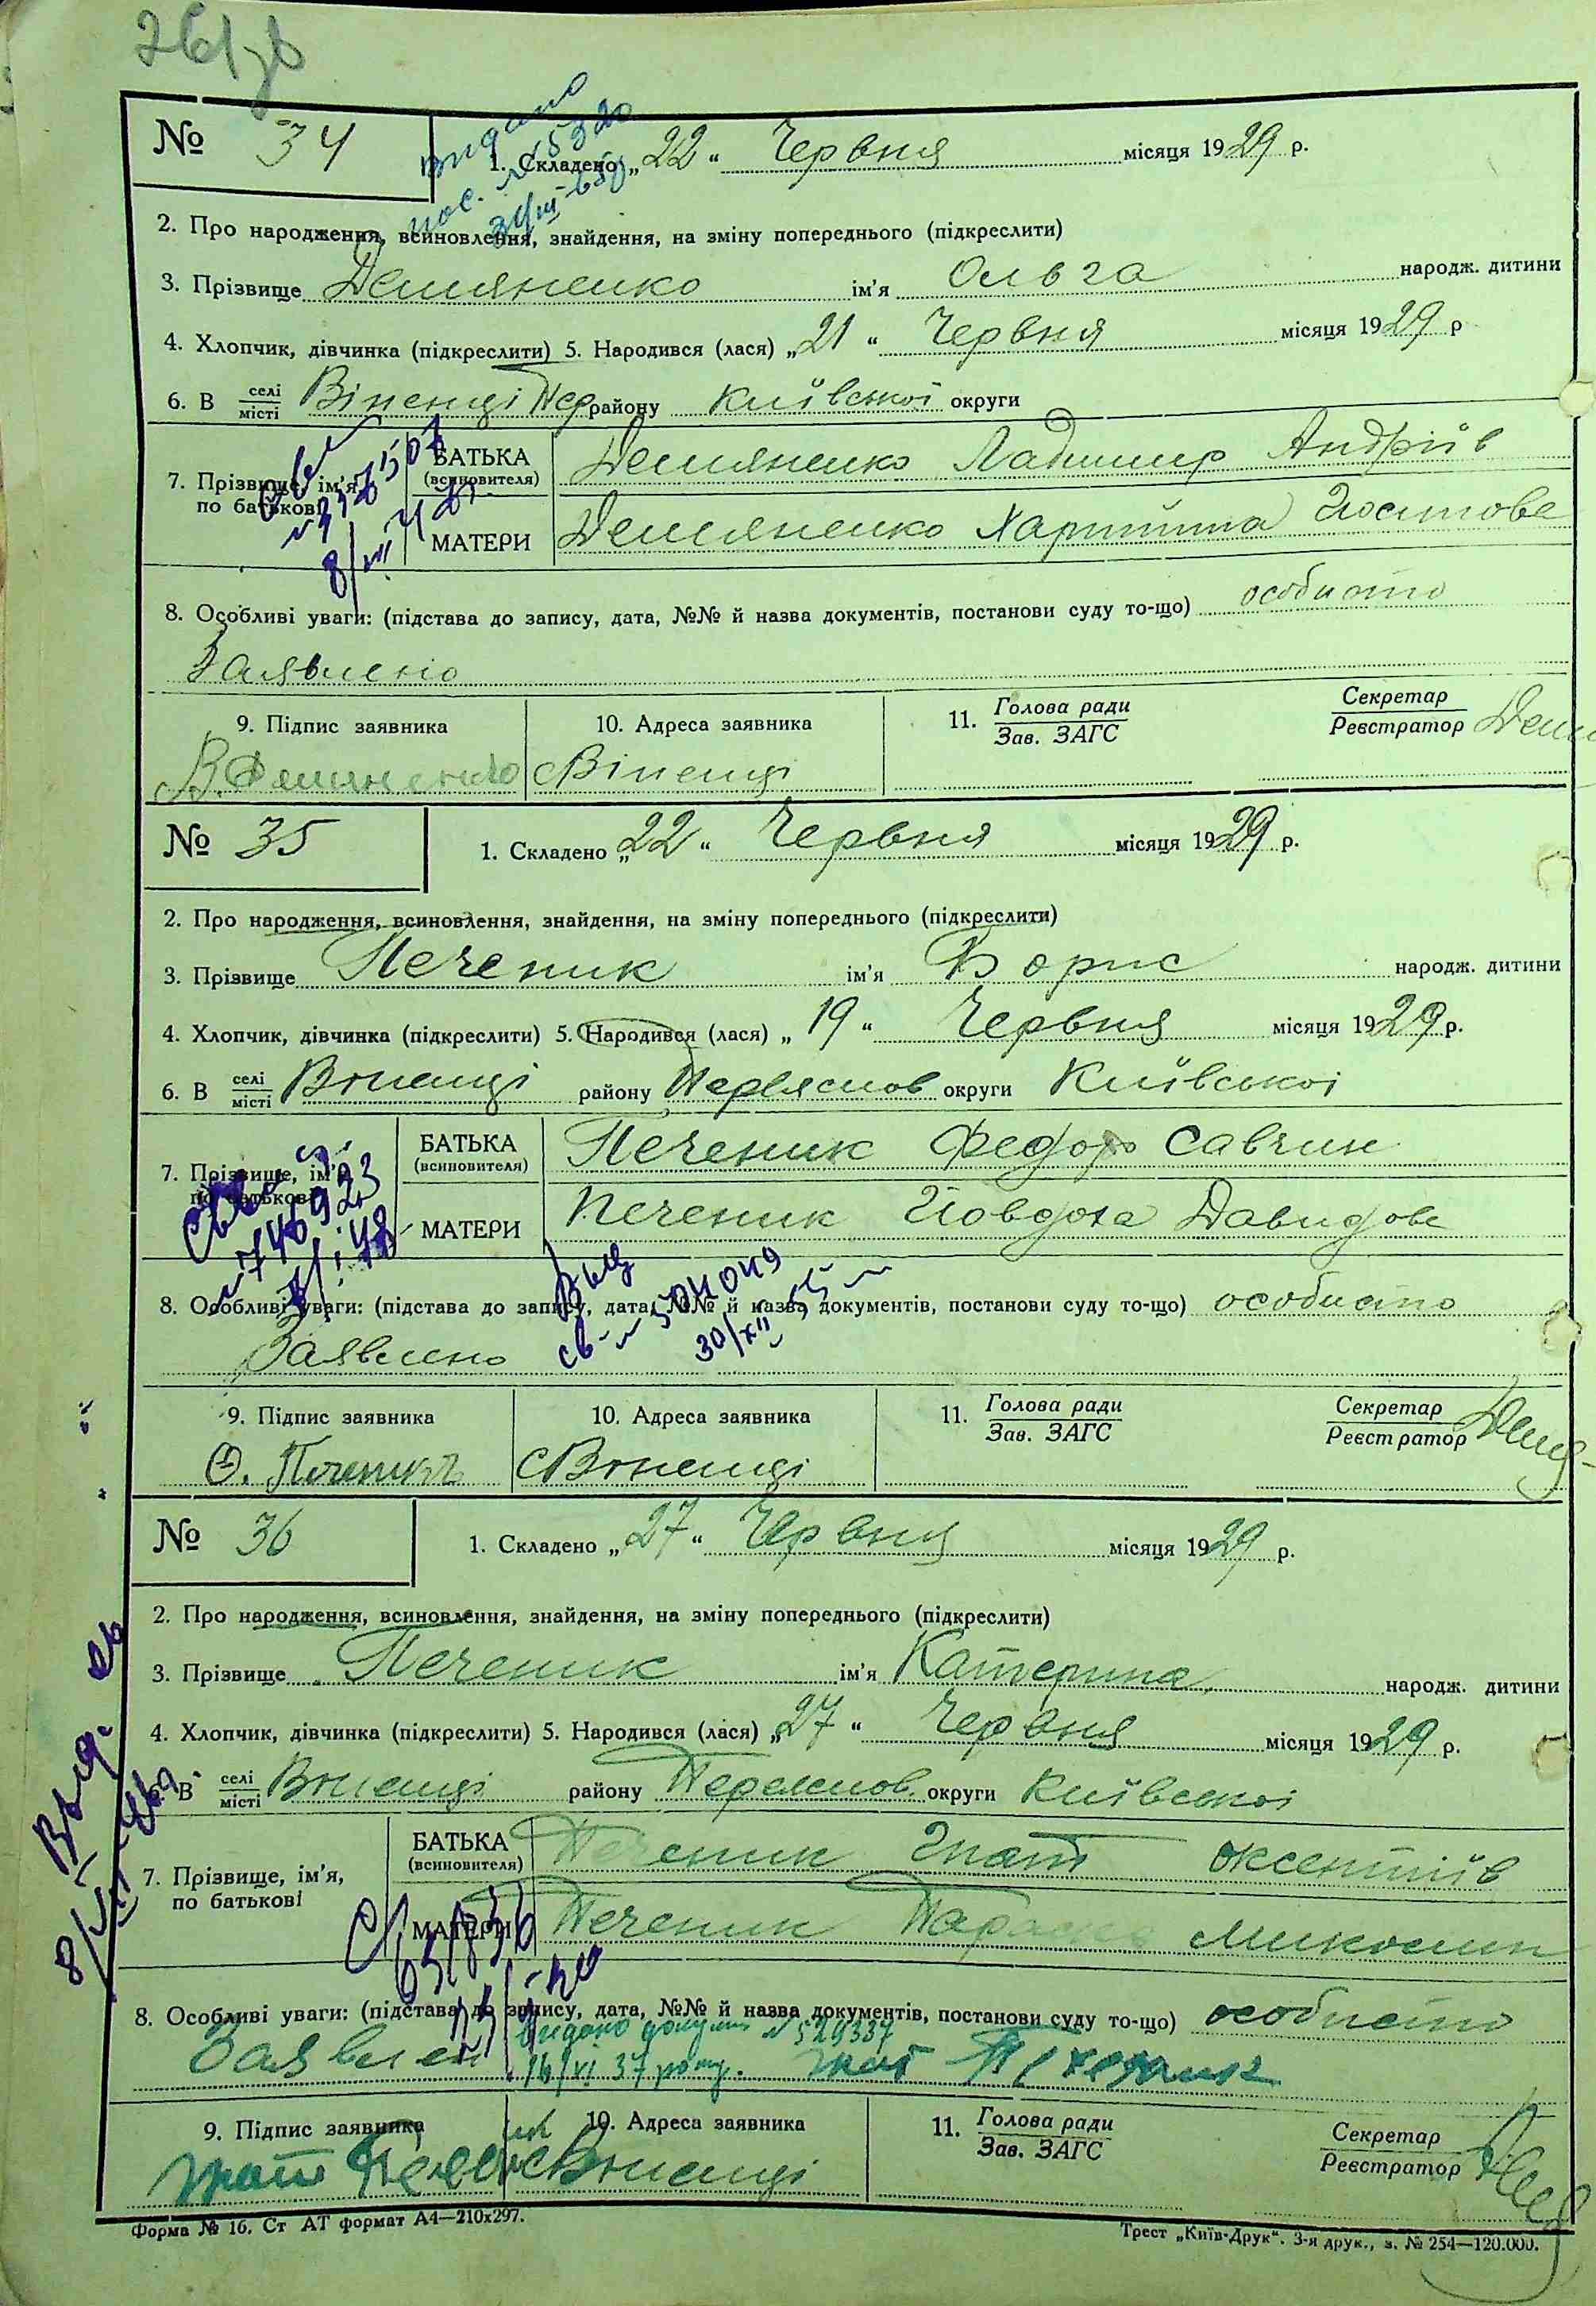 261зв
№ 34
1. Складено „22“ Червня місяця 1929 р.
видано
2. Про народження, всиновлення, знайдення, на зміну попереднього (підкреслити)
3. Прізвище Демяненко ім'я Ольга народж. дитини
4. Хлопчик, дівчинка (підкреслити) 5. Народився (лася) „21“ Червня місяця 1929 р
6. В селі місті Віненці Пер району Київської округи
7. Прізвище, ім'я, по батькові
БАТЬКА (всиновителя) Демяненко Ладимир Андріїв
МАТЕРИ Демяненко Харитина Йосипове
8. Особливі уваги: (підстава до запису, дата, №№ й назва документів, постанови суду то-що) особисто
Заявлено
9. Підпис заявника 10. Адреса заявника 11. Голова ради Зав. ЗАГС Секретар Реєстратор
В. Демяненко с Віненці
№ 35
1. Складено „22“ Червня місяця 1929 р.
2. Про народження, всиновлення, знайдення, на зміну попереднього (підкреслити)
3. Прізвище Печеник ім'я Борис народж. дитини
4. Хлопчик, дівчинка (підкреслити) 5. Народився (лася) „19“ Червня місяця 1929 р.
6. В селі місті Вʼненці району Переяслов округи Київської
7. Прізвище, ім'я, по батькові
БАТЬКА (всиновителя) Печеник Федор Савчин
МАТЕРИ Печеник Йовдоха Давидове
8. Особливі уваги: (підстава до запису, дата, №№ й назва документів, постанови суду то-що) особисто
Заявлено
30/XII 55
9. Підпис заявника 10. Адреса заявника 11. Голова ради Зав. ЗАГС Секретар Реєстратор
Ѳ. Печеникъ с Вʼненці
№ 36
1. Складено „27“ Червня місяця 1929 р.
2. Про народження, всиновлення, знайдення, на зміну попереднього (підкреслити)
3. Прізвище Печеник ім'я Катерина народж. дитини
4. Хлопчик, дівчинка (підкреслити) 5. Народився (лася) „27“ Червня місяця 1929 р.
6. В селі місті Вʼненці району Переяслов. округи Київської
7. Прізвище, ім'я, по батькові
БАТЬКА (всиновителя) Печеник Гнат Оксентіїв
МАТЕРИ Печеник Параска Миколин
8. Особливі уваги: (підстава до запису, дата, №№ й назва документів, постанови суду то-що) особисто
Заявлен
видано докумен №529337
16/VI 37 року. Гнат Печеник
9. Підпис заявника 10. Адреса заявника 11. Голова ради Зав. ЗАГС Секретар Реєстратор
Гнат Печеник с Вʼненці
Форма № 16. Ст АТ формат А4—210х297.
Трест „Київ-Друк“. 3-я друк., з. № 254—120.000.